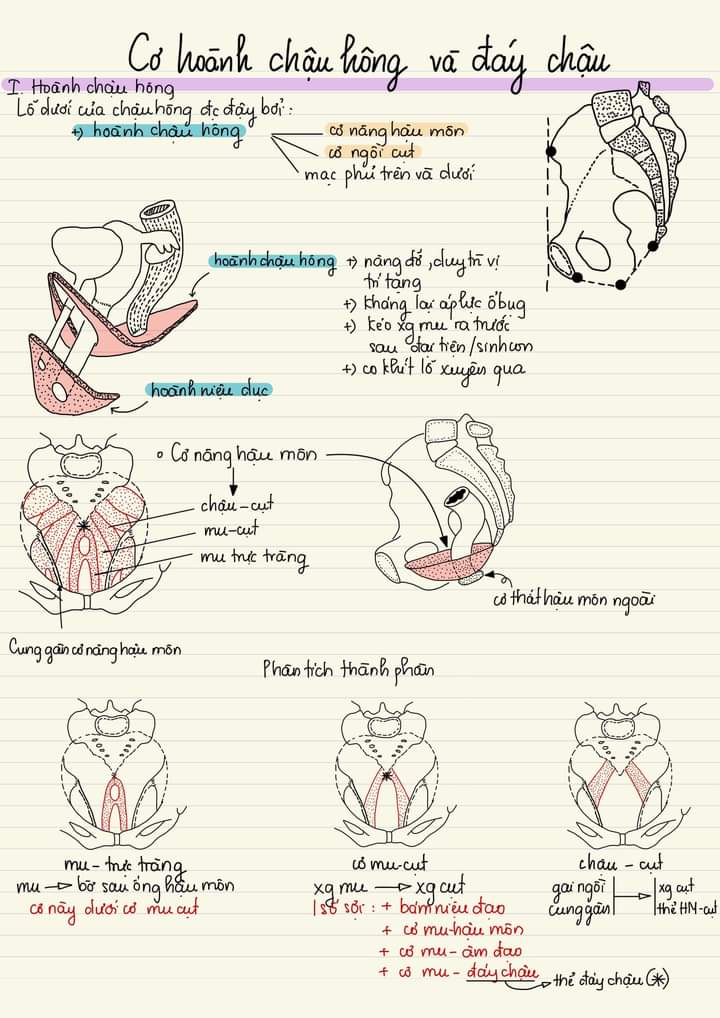 Cơ hoành chậu hông và đáy chậu
I. Hoành chậu hông
Lỗ dưới của chậu hông đc đậy bởi:
+) hoành chậu hông
cơ nâng hậu môn
cơ ngồi cụt
mạc phủ trên và dưới
hoành chậu hông
+) nâng đỡ, duy trì vị
trí tạng
+) kháng lại áp lực ổ bụg
+) kéo xg mu ra trước
sau đại tiện/sinh con
+) co khít lỗ xuyên qua
hoành niệu dục
Cơ nâng hậu môn
chậu-cụt
mu-cụt
mu trực tràng
cơ thắt hậu môn ngoài
Cung gân cơ nâng hậu môn
Phân tích thành phần
mu-trực tràng
mu → bờ sau ống hậu môn
cơ này dưới cơ mu cụt
cơ mu-cụt
xg mu → xg cụt
1 số sợi: + bám niệu đạo
+ cơ mu-hậu môn
+ cơ mu-âm đạo
+ cơ mu-đáy chậu → thể đáy chậu (*)
chậu-cụt
gai ngồi
cung gân
xg cụt
thể HM-cụt